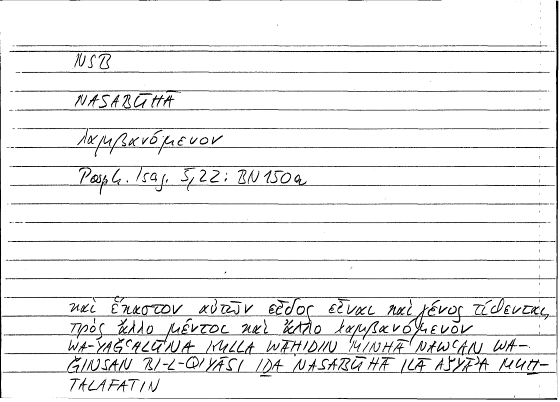 NSB
NASABŪHĀ
λαμβανόμενον
Porph. Isag. 5,22: BN 150a
καὶ ἕκαστον αὐτῶν εἶδος εἶναι καὶ γένος τίθενται,
πρὸς ἄλλο μέντοι καὶ ἄλλο λαμβανόμενον
WA-YAǦʿALŪNA KULLA WĀḤIDIN MINHĀ NAWʿAN WA-
ǦINSAN BI-L-QIYĀSI IḎĀ NASABŪHĀ ILĀ AŠYĀʾA MUḪ-
TALAFATIN